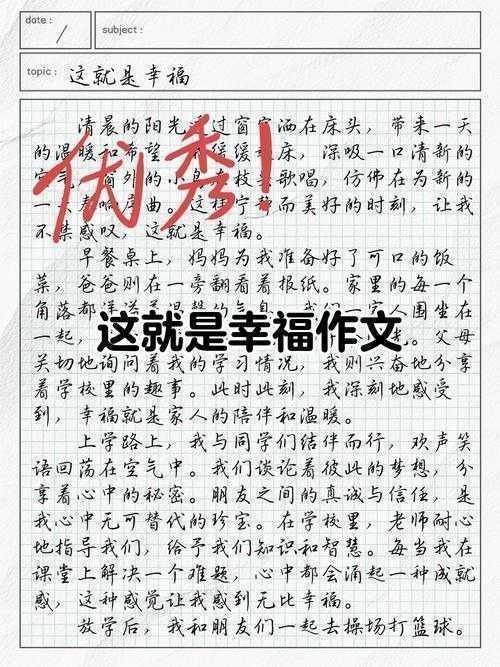 date:
subject:
topic: 这就是幸福
优秀!
清晨的阳光过窗洒在床头，带来一天
的温暖和希望。缓缓床，深吸一口清新的
外的小鸟枝头歌唱，仿佛在为新的
一曲。这宁而美好的时刻，让我
不禁感叹，这就是幸福。
早餐桌上，妈妈为我准备好了可口的饭
菜，爸爸则在一旁翻看着报纸。家里的每一个
角落都洋溢着温馨的气息。我们一家人围坐在
一起，
这就是幸福作文
父母
关切地询问着我的学习情况，我则兴奋地分享
着学校里的趣事。此时此刻，我深刻地感受
到，幸福就是家人的陪伴和温暖。
上学路上，我与同学们结伴而行，欢声笑
语回荡在空气中。我们谈论着彼此的梦想，分
享着心中的秘密。朋友之间的真诚与信任，是
我心中无可替代的珍宝。在学校里，老师耐心
地指导我们，给予我们知识和智慧。每当我在
课堂上解决一个难题，心中都会涌起一种成就
感，这种感觉让我感到无比幸福。
放学后，我和朋友们一起去操场打篮球。